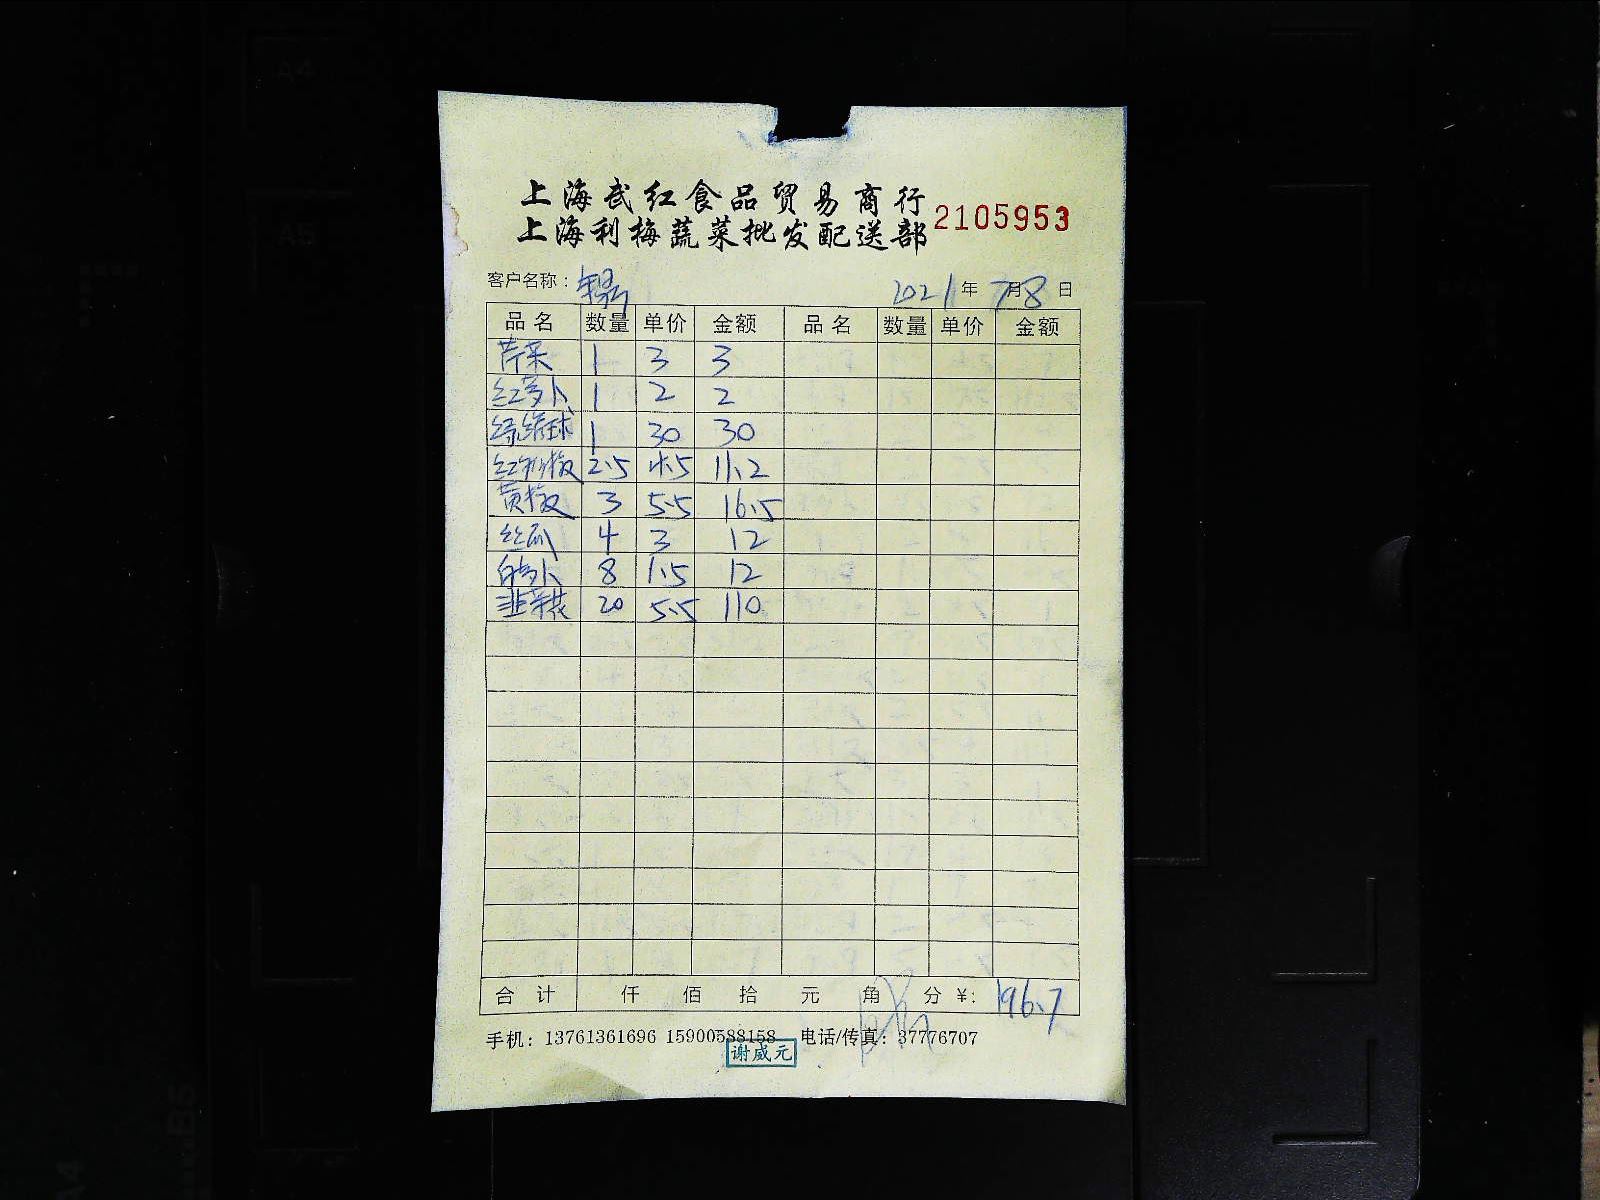 上海武红食品贸易商行
上海利梅蔬菜批发配送部 2105953
客户名称： 2021年7月8日
品名 数量 单价 金额 品名 数量 单价 金额
芹菜 1 3 3
红萝卜 1 2 2
1 30 30
2.5 4.5 11.2
黄椒 3 5.5 16.5
丝瓜 4 3 12
白萝卜 8 1.5 12
韭菜 20 5.5 110
合计 仟 佰 拾 元 角 分 ¥: 196.7
手机：13761361696 15900588158 电话/传真：37776707
谢威元
A4
A5
B5
A4